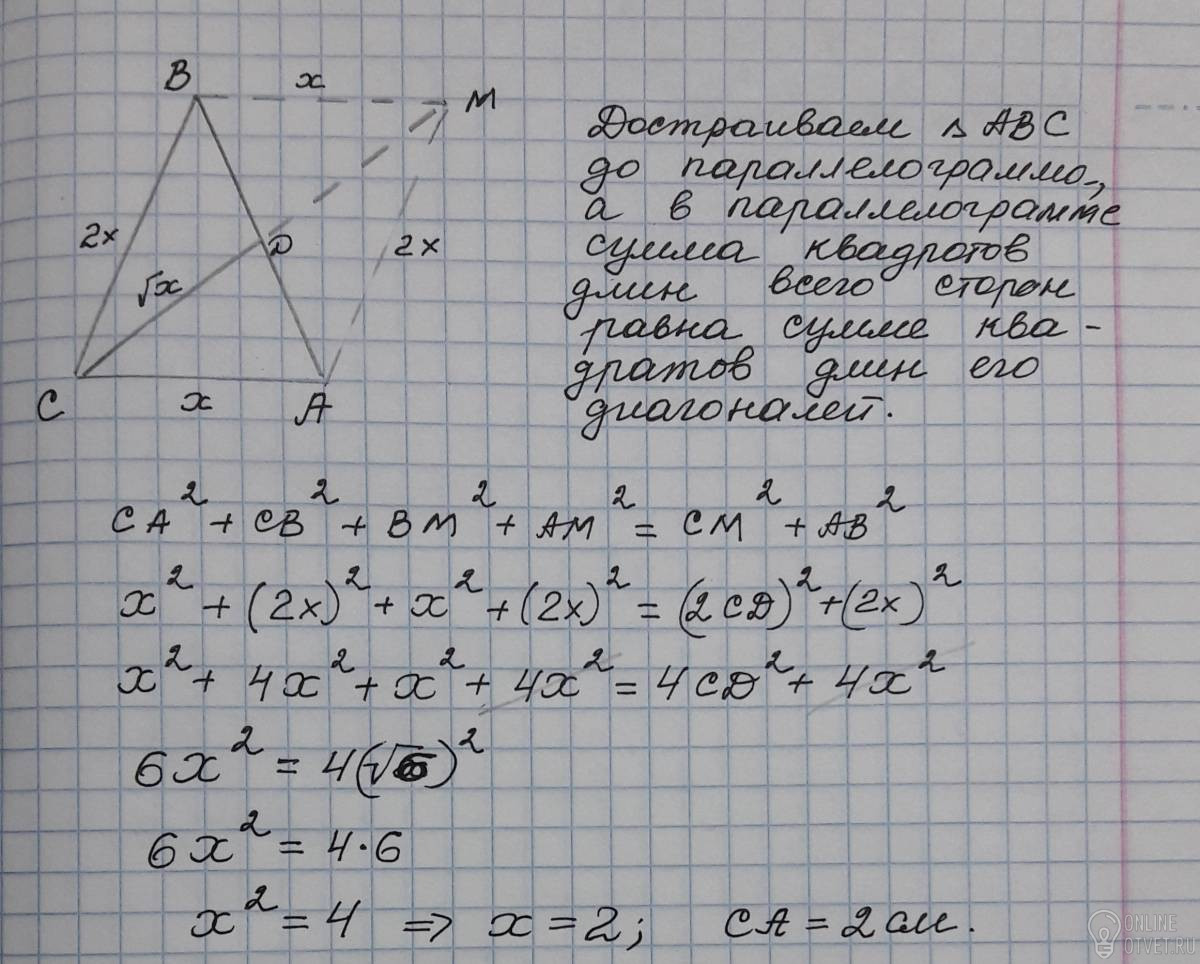 B x M
2x D 2x
√x
C x A
Достраиваем △ ABC
до параллелограмма,
а в параллелограмме
сумма квадратов
длин всего сторон
равна сумме ква-
дратов длин его
диагоналей.
CA² + CB² + BM² + AM² = CM² + AB²
x² + (2x)² + x² + (2x)² = (2CD)² + (2x)²
x² + 4x² + x² + 4x² = 4CD² + 4x²
6x² = 4(√6)²
6x² = 4·6
x² = 4 ⇒ x = 2; CA = 2 см.
ONLINE
OTVET.RU